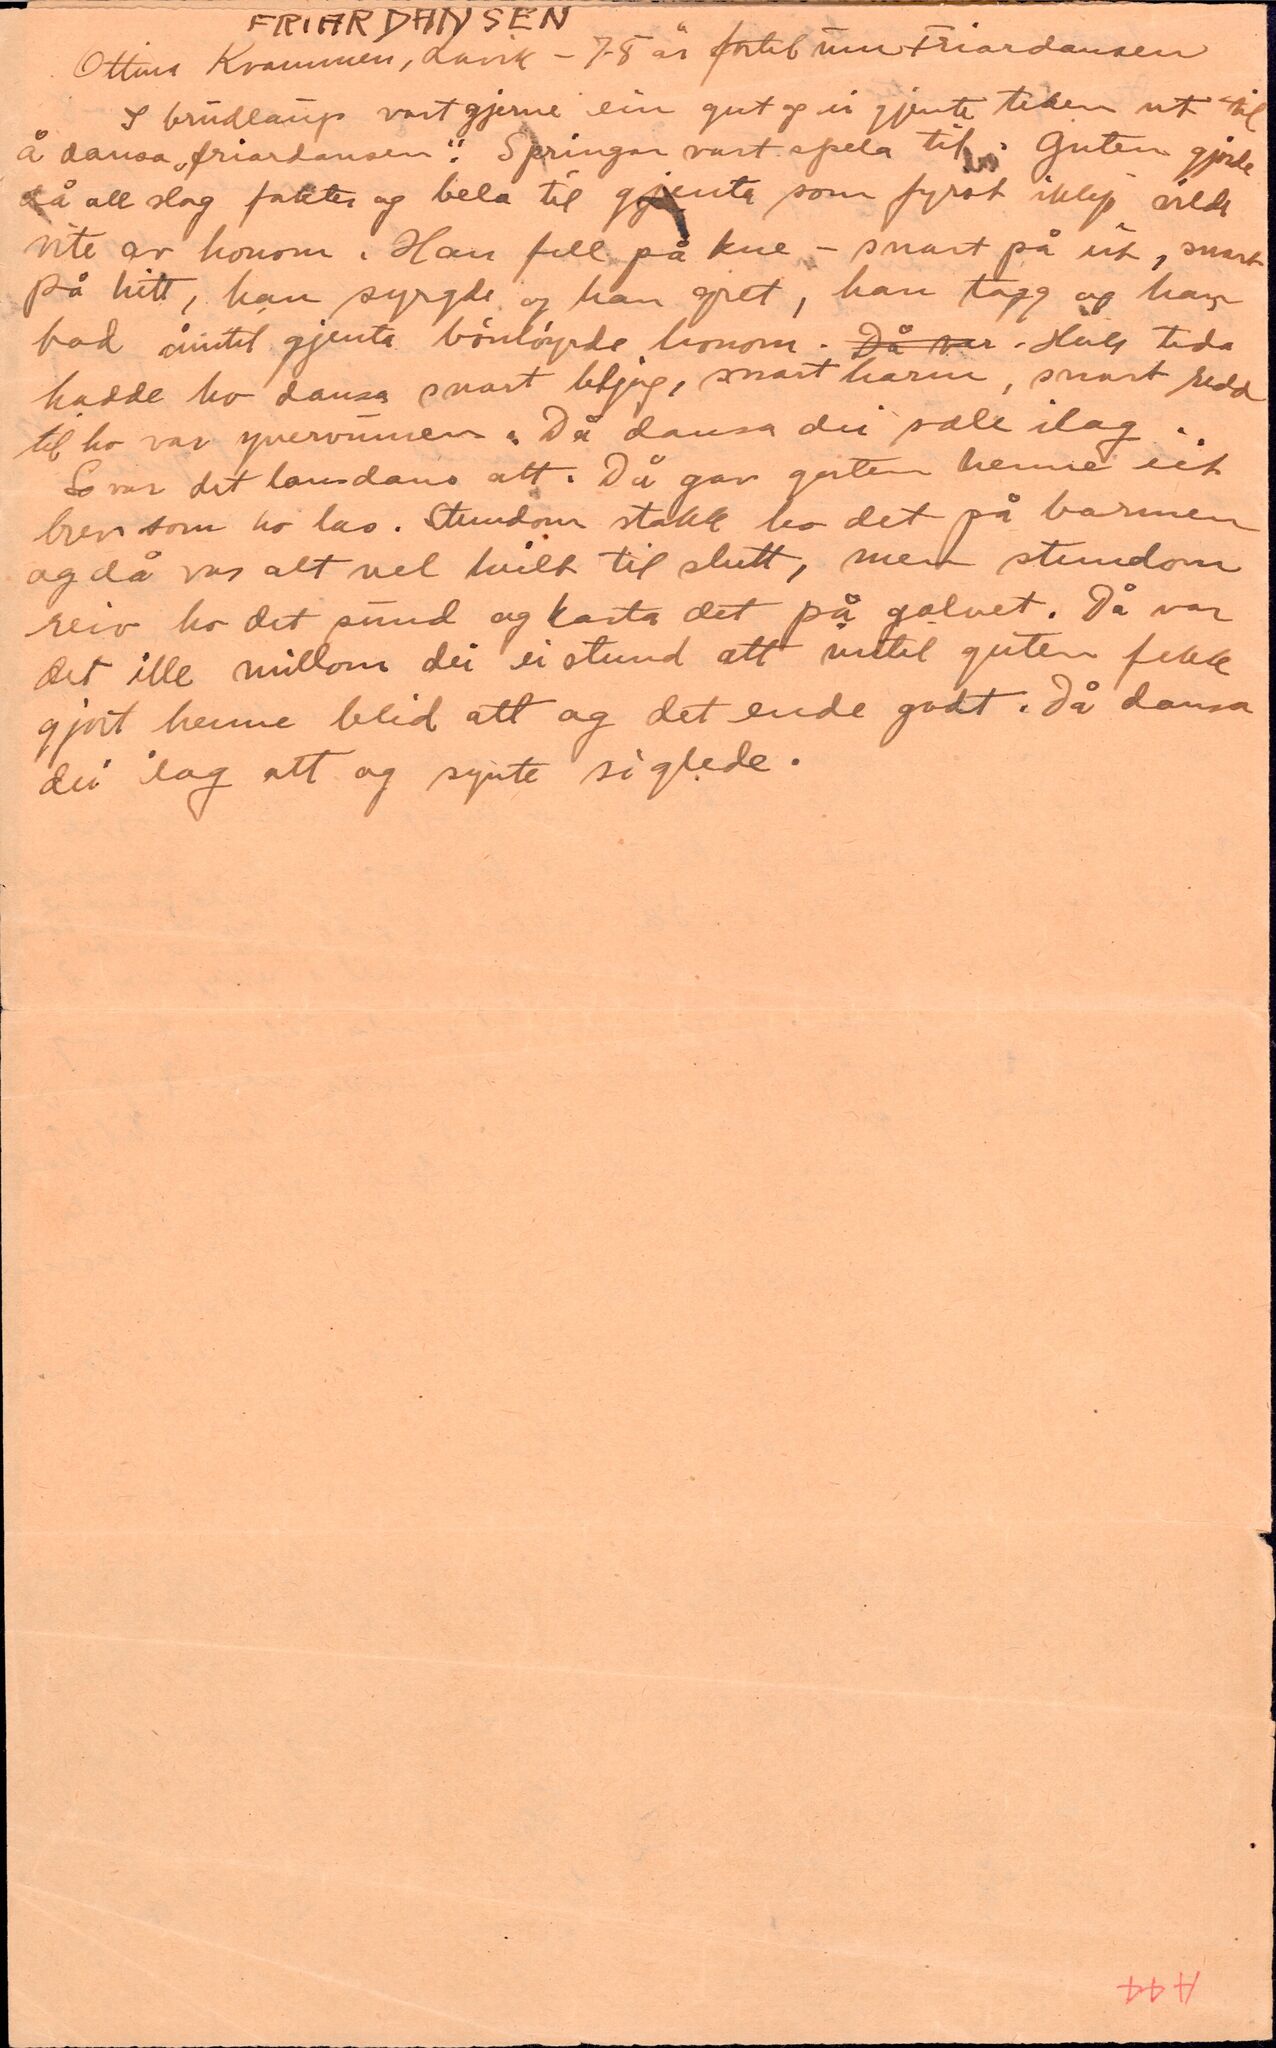 FRIARDANSEN
Ottine Kvammen, Lavik – 78 år fortel um Friardansen
I brudlaup vart gjerne ein gut og ei gjente teken ut til
å dansa „friardansen". Springar vart spela til. Guten gjorde
då all slag fakter og bela til gjenta som fyrst ikkje vilde
vite av honom. Han fell på kne – snart på eit, snart
på hitt, han syrgde og han gret, han tagg og han
bad inntil gjenta bönhöyrde honom. Då var. Heile tida
hadde ho dansa snart blyg, snart harm, snart redd
til ho var yvervunnen. Då dansa dei sæle ilag.
So var det lausdans att. Då gav guten henne eit
brev som ho las. Stundom stakk ho det på barmen
og då var alt vel heilt til slutt, men stundom
reiv ho det sund og kasta det på golvet. Då var
det ille millom dei ei stund att inntil guten fekk
gjort henne blid att og det ende godt. Då dansa
dei ilag att og synte si glede.
A44